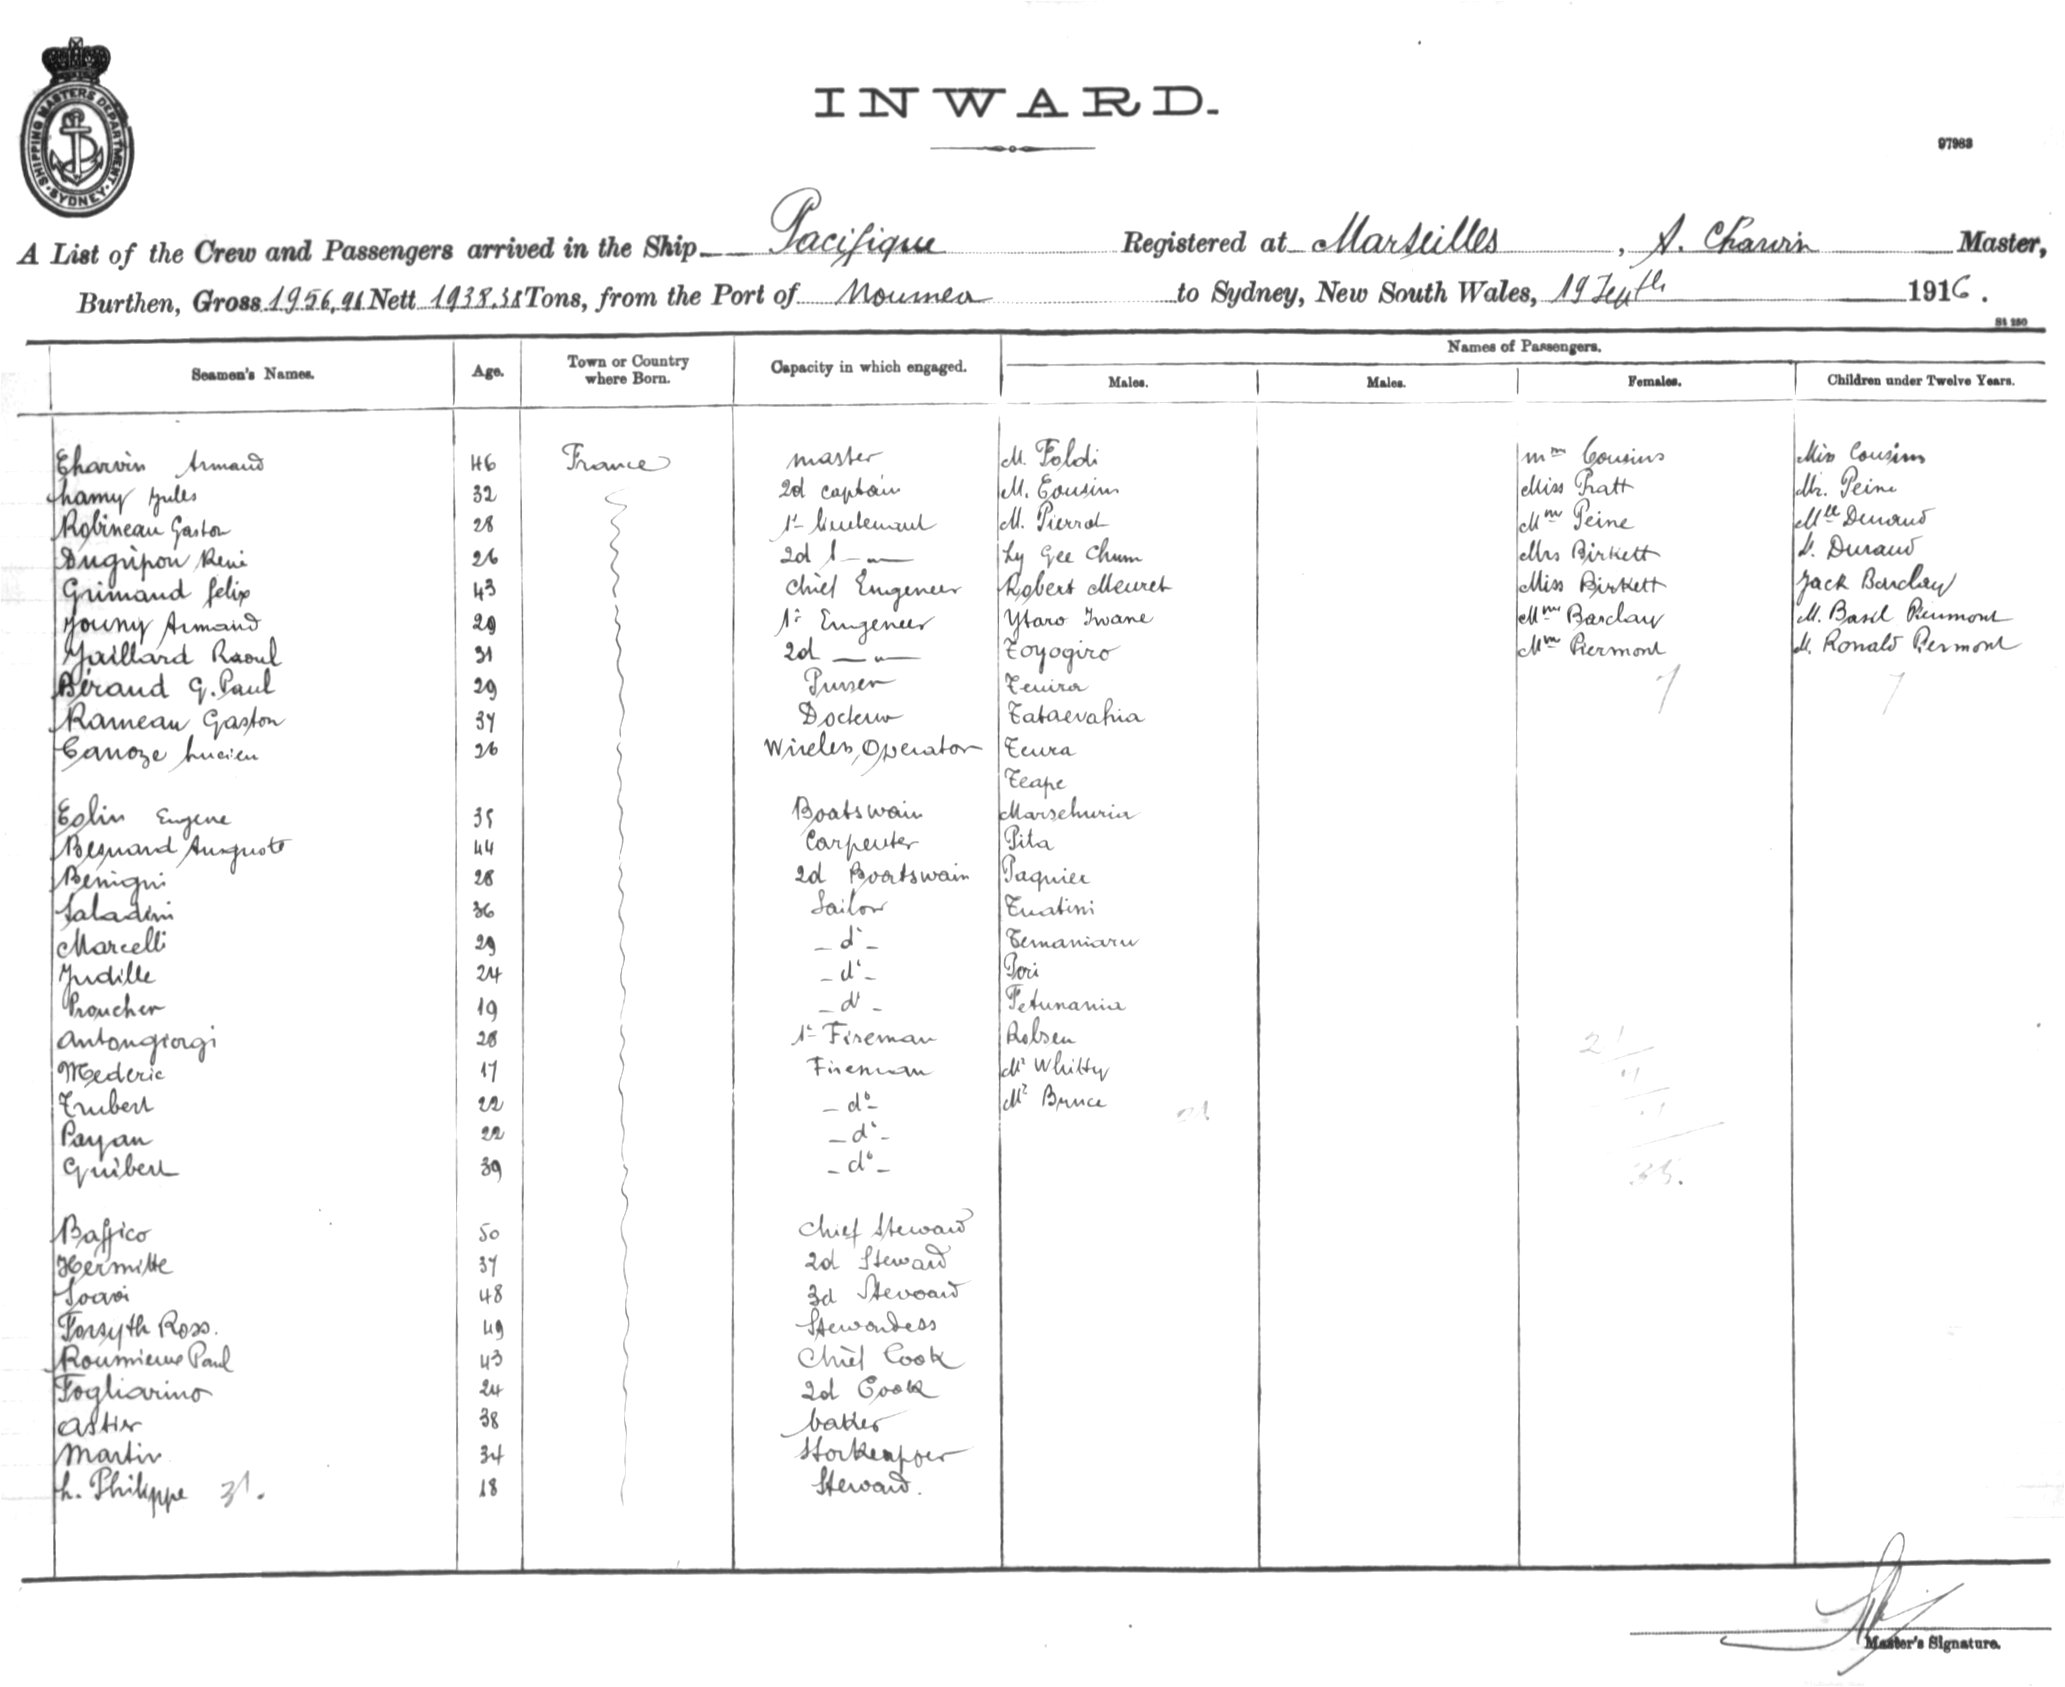 SHIPPING MASTERS DEPARTMENT · SYDNEY ·
INWARD.
97983
A List of the Crew and Passengers arrived in the Ship Pacifique Registered at Marseilles, A. Charvin Master,
Burthen, Gross 1956,96 Nett 1938.38 Tons, from the Port of Noumea to Sydney, New South Wales, 19 Septth 1916.
Seamen's Names. Age. Town or Country where Born. Capacity in which engaged. Names of Passengers.
Males. Males. Females. Children under Twelve Years.
Charvin Armand 46 France master M. Foldi Mm Cousins Miss Cousins
Lamy Jules 32 2d captain M. Cousins Miss Pratt Mr. Peine
Robineau Gaston 28 1r lieutenant M. Pierrot Mme Peine Mlle Durand
Dugripon René 26 2d l -"- Ly Gee Chum Mrs Birkett Durand
Grimaud felix 43 chief Eugeneer Robert Meuret Miss Birkett Jack Barclay
Jouny Armand 29 1r Eugeneer Ytaro Iwane Mme Barclay M. Basil Piermont
Gaillard Raoul 31 2d -"- Toyogiro Mm Piermont M. Ronald Piermont
Béraud G. Paul 29 Purser Teuira 7 7
Rameau Gaston 37 Docteur Tataevahia
Canoze Lucien 26 Wireless Operator Teura
Teape
Colin Eugene 35 Boatswain
Besnard Auguste 44 Carpenter Pita
Benigni 28 2d Boatswain Paquier
Saladini 36 Sailor Tuatini
Marcelli 29 - do - Temaniaru
Judille 24 - do - Pori
Proucher 19 - do - Petunania
Antongiorgi 28 1r Fireman Robsen
Mederic 17 Fireman Mr Whitty
Trubert 22 - do - Mr Bruce 21
Payan 22 - do -
Guibert 39 - do - 35.
Baffico 50 chief Steward
Hermitte 37 2d Steward
Soavi 48 3d Steward
Forsyth Ross. 49 Stewardess
Roumieux Paul 43 Chief Cook
Fogliarino 24 2d Cook
Astier 38 baker
Martin 34 Storkeepper
L. Philippe 31. 18 Steward.
Master's Signature.